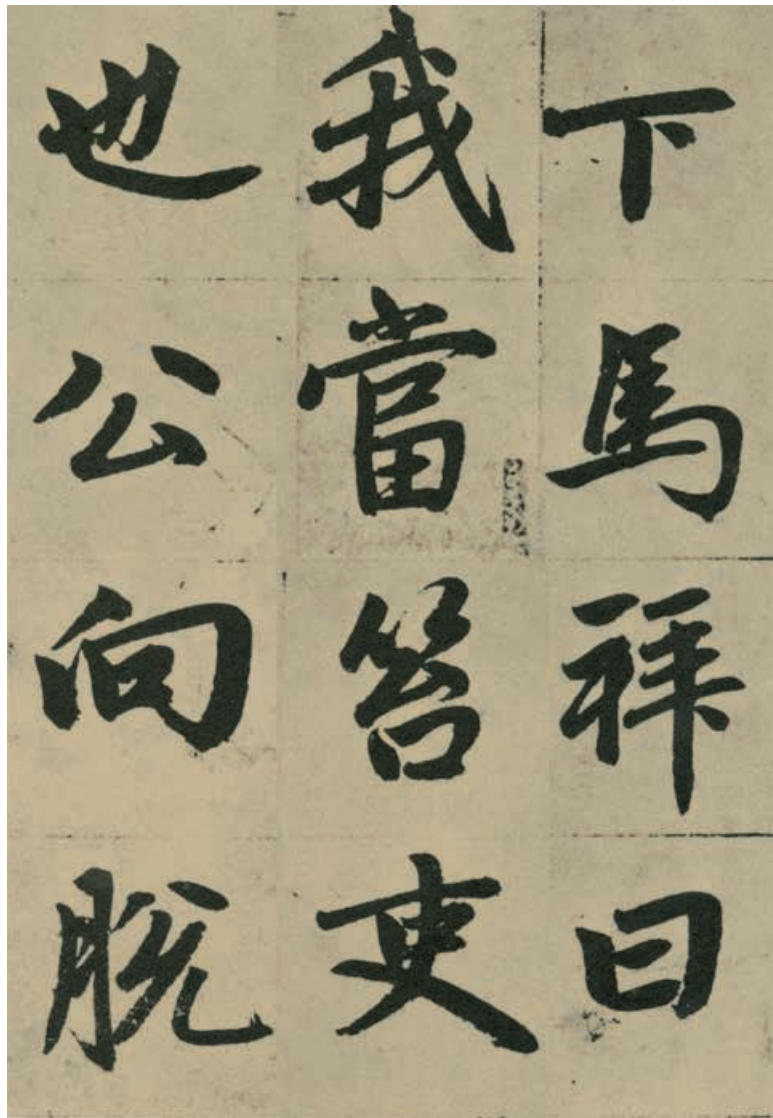 下馬拜曰
我當笞吏
也公向脫